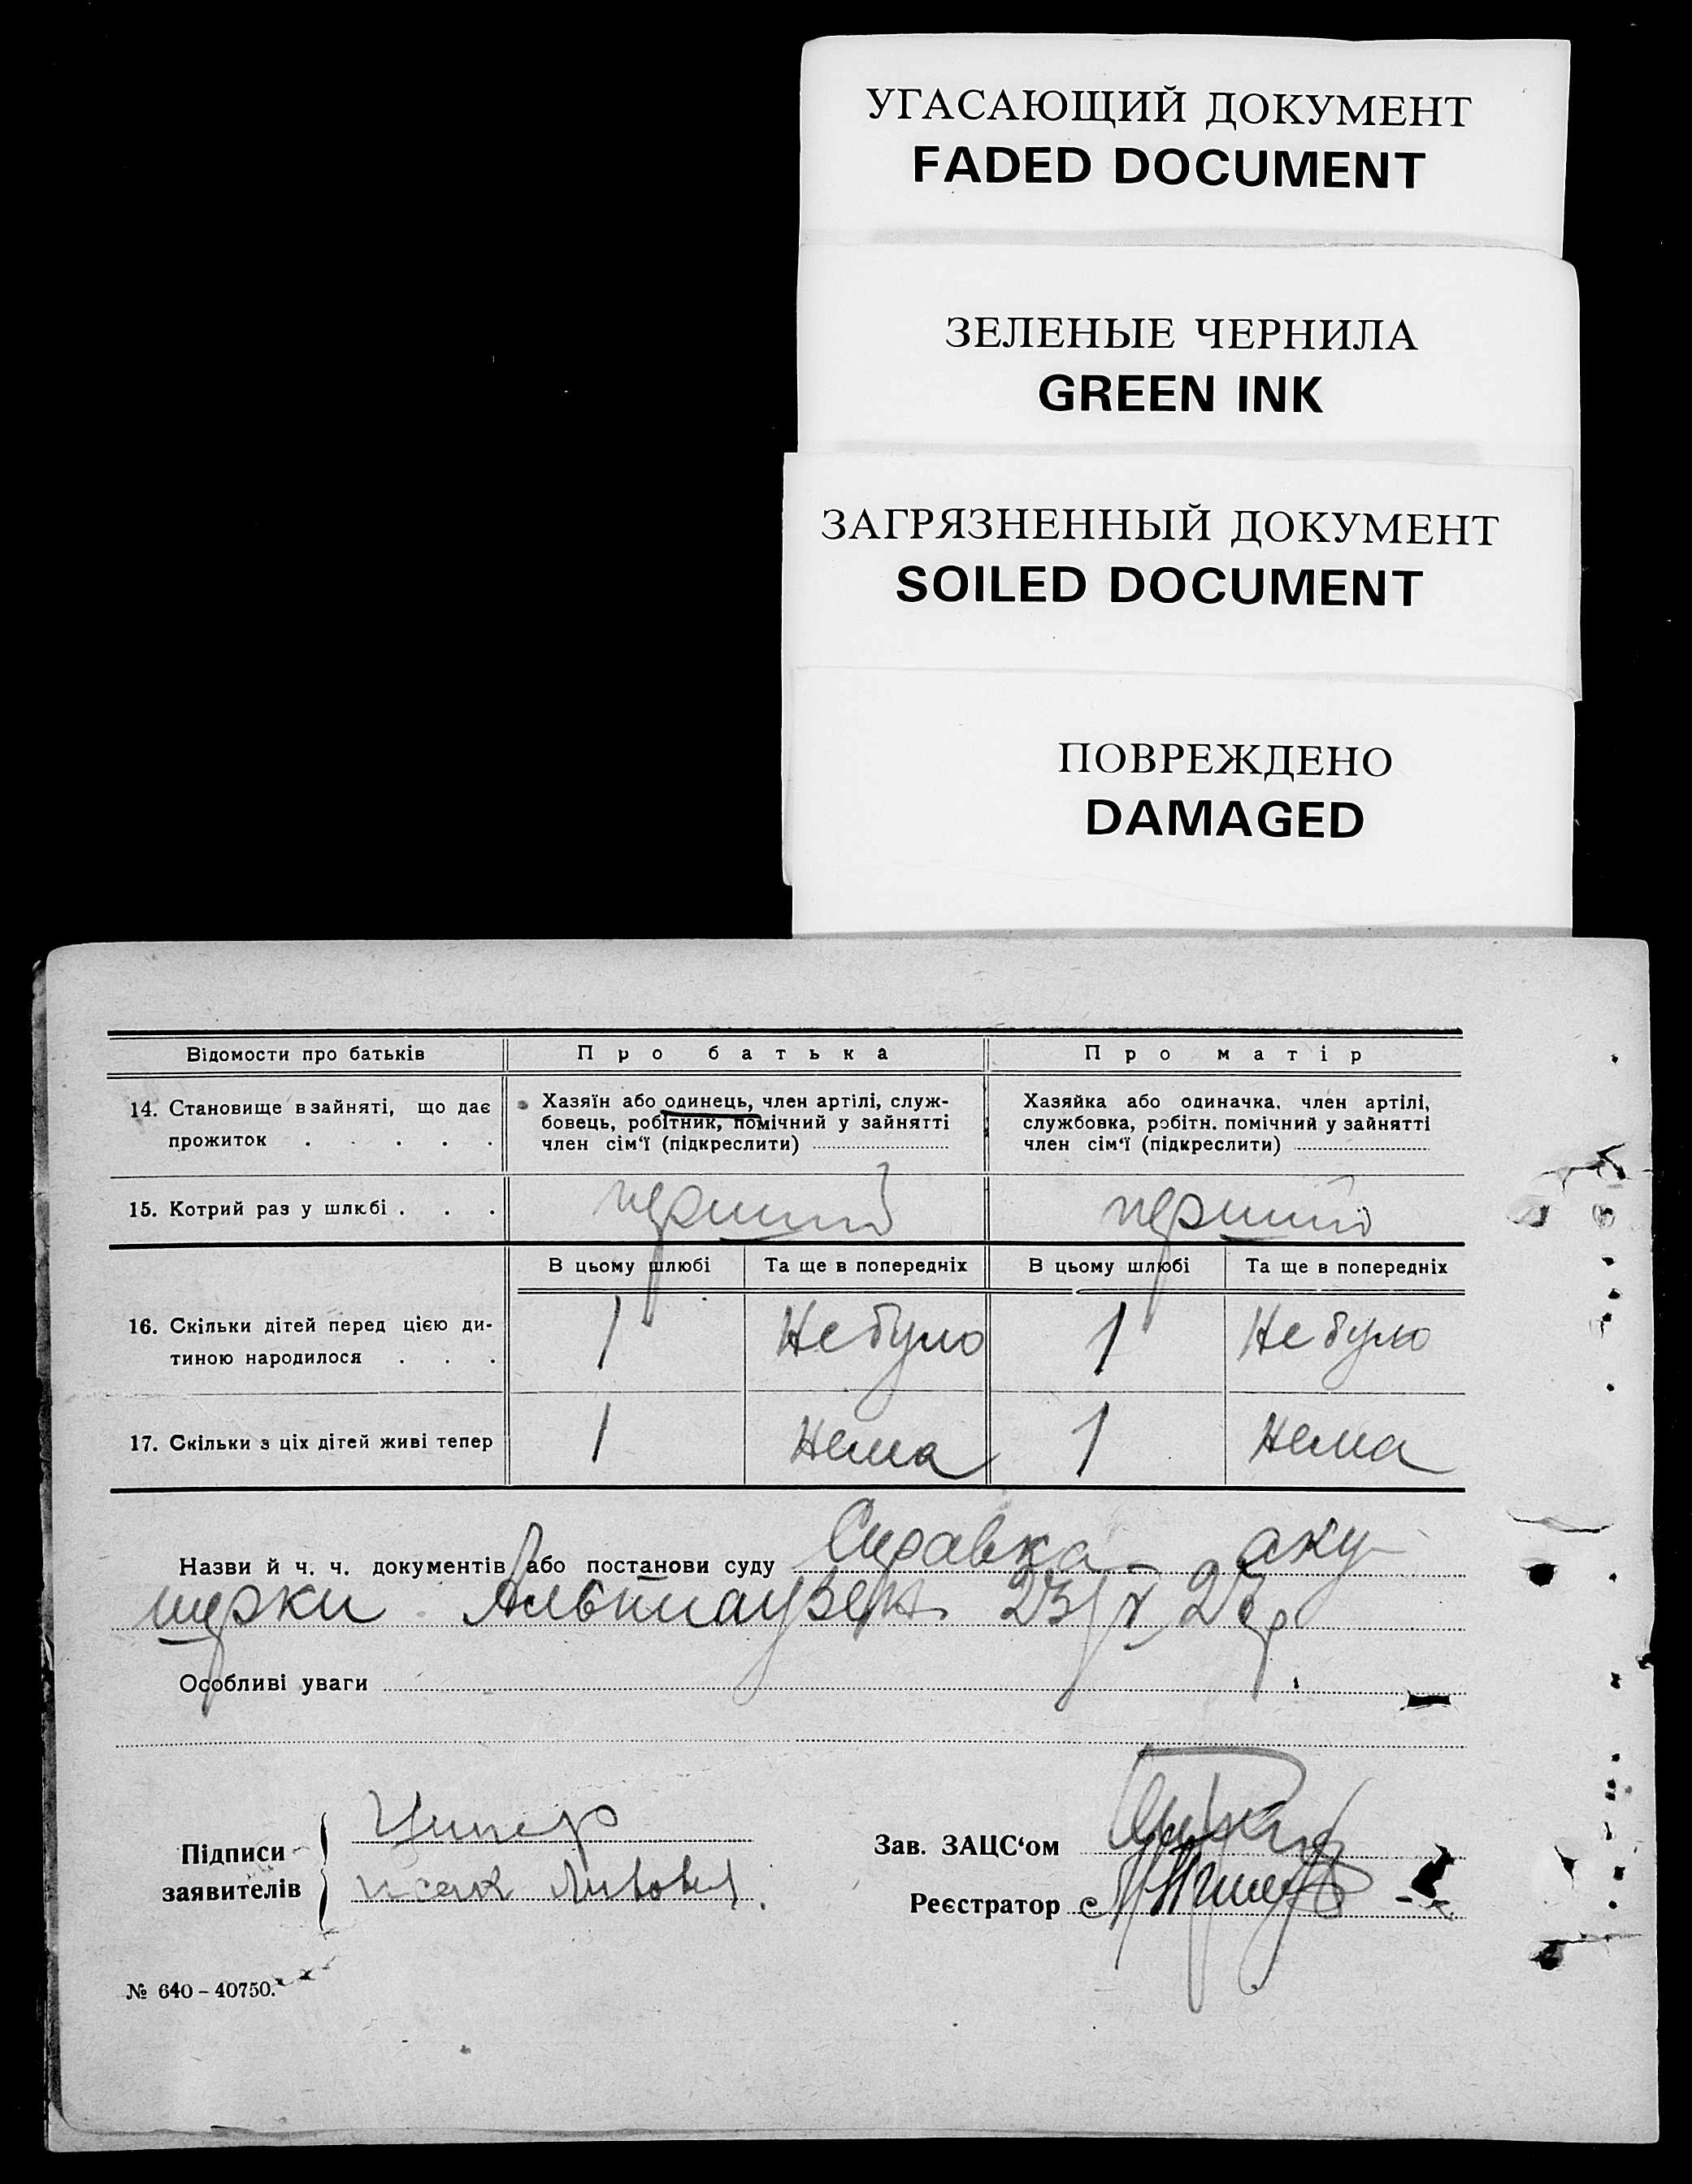 УГАСАЮЩИЙ ДОКУМЕНТ
FADED DOCUMENT
ЗЕЛЕНЫЕ ЧЕРНИЛА
GREEN INK
ЗАГРЯЗНЕННЫЙ ДОКУМЕНТ
SOILED DOCUMENT
ПОВРЕЖДЕНО
DAMAGED
Відомости про батьків
Про батька
Про матір
14. Становище в зайняті, що дає
прожиток . . . . .
Хазяїн або одинець, член артілі, служ-
бовець, робітник, помічний у зайнятті
член сім'ї (підкреслити)
Хазяйка або одиначка, член артілі,
службовка, робітн. помічний у зайнятті
член сім'ї (підкреслити)
15. Котрий раз у шлюбі . . .
перший
перший
В цьому шлюбі
Та ще в попередніх
В цьому шлюбі
Та ще в попередніх
16. Скільки дітей перед цією ди-
тиною народилося . . .
1
Не було
1
Не було
17. Скільки з ціх дітей живі тепер
1
Нема
1
Нема
Назви й ч. ч. документів або постанови суду Справка аку-
шерки 23/V
Особливі уваги
Підписи
заявителів
Ципер
Исак
Зав. ЗАЦС'ом
Реєстратор
№ 640 – 40750.